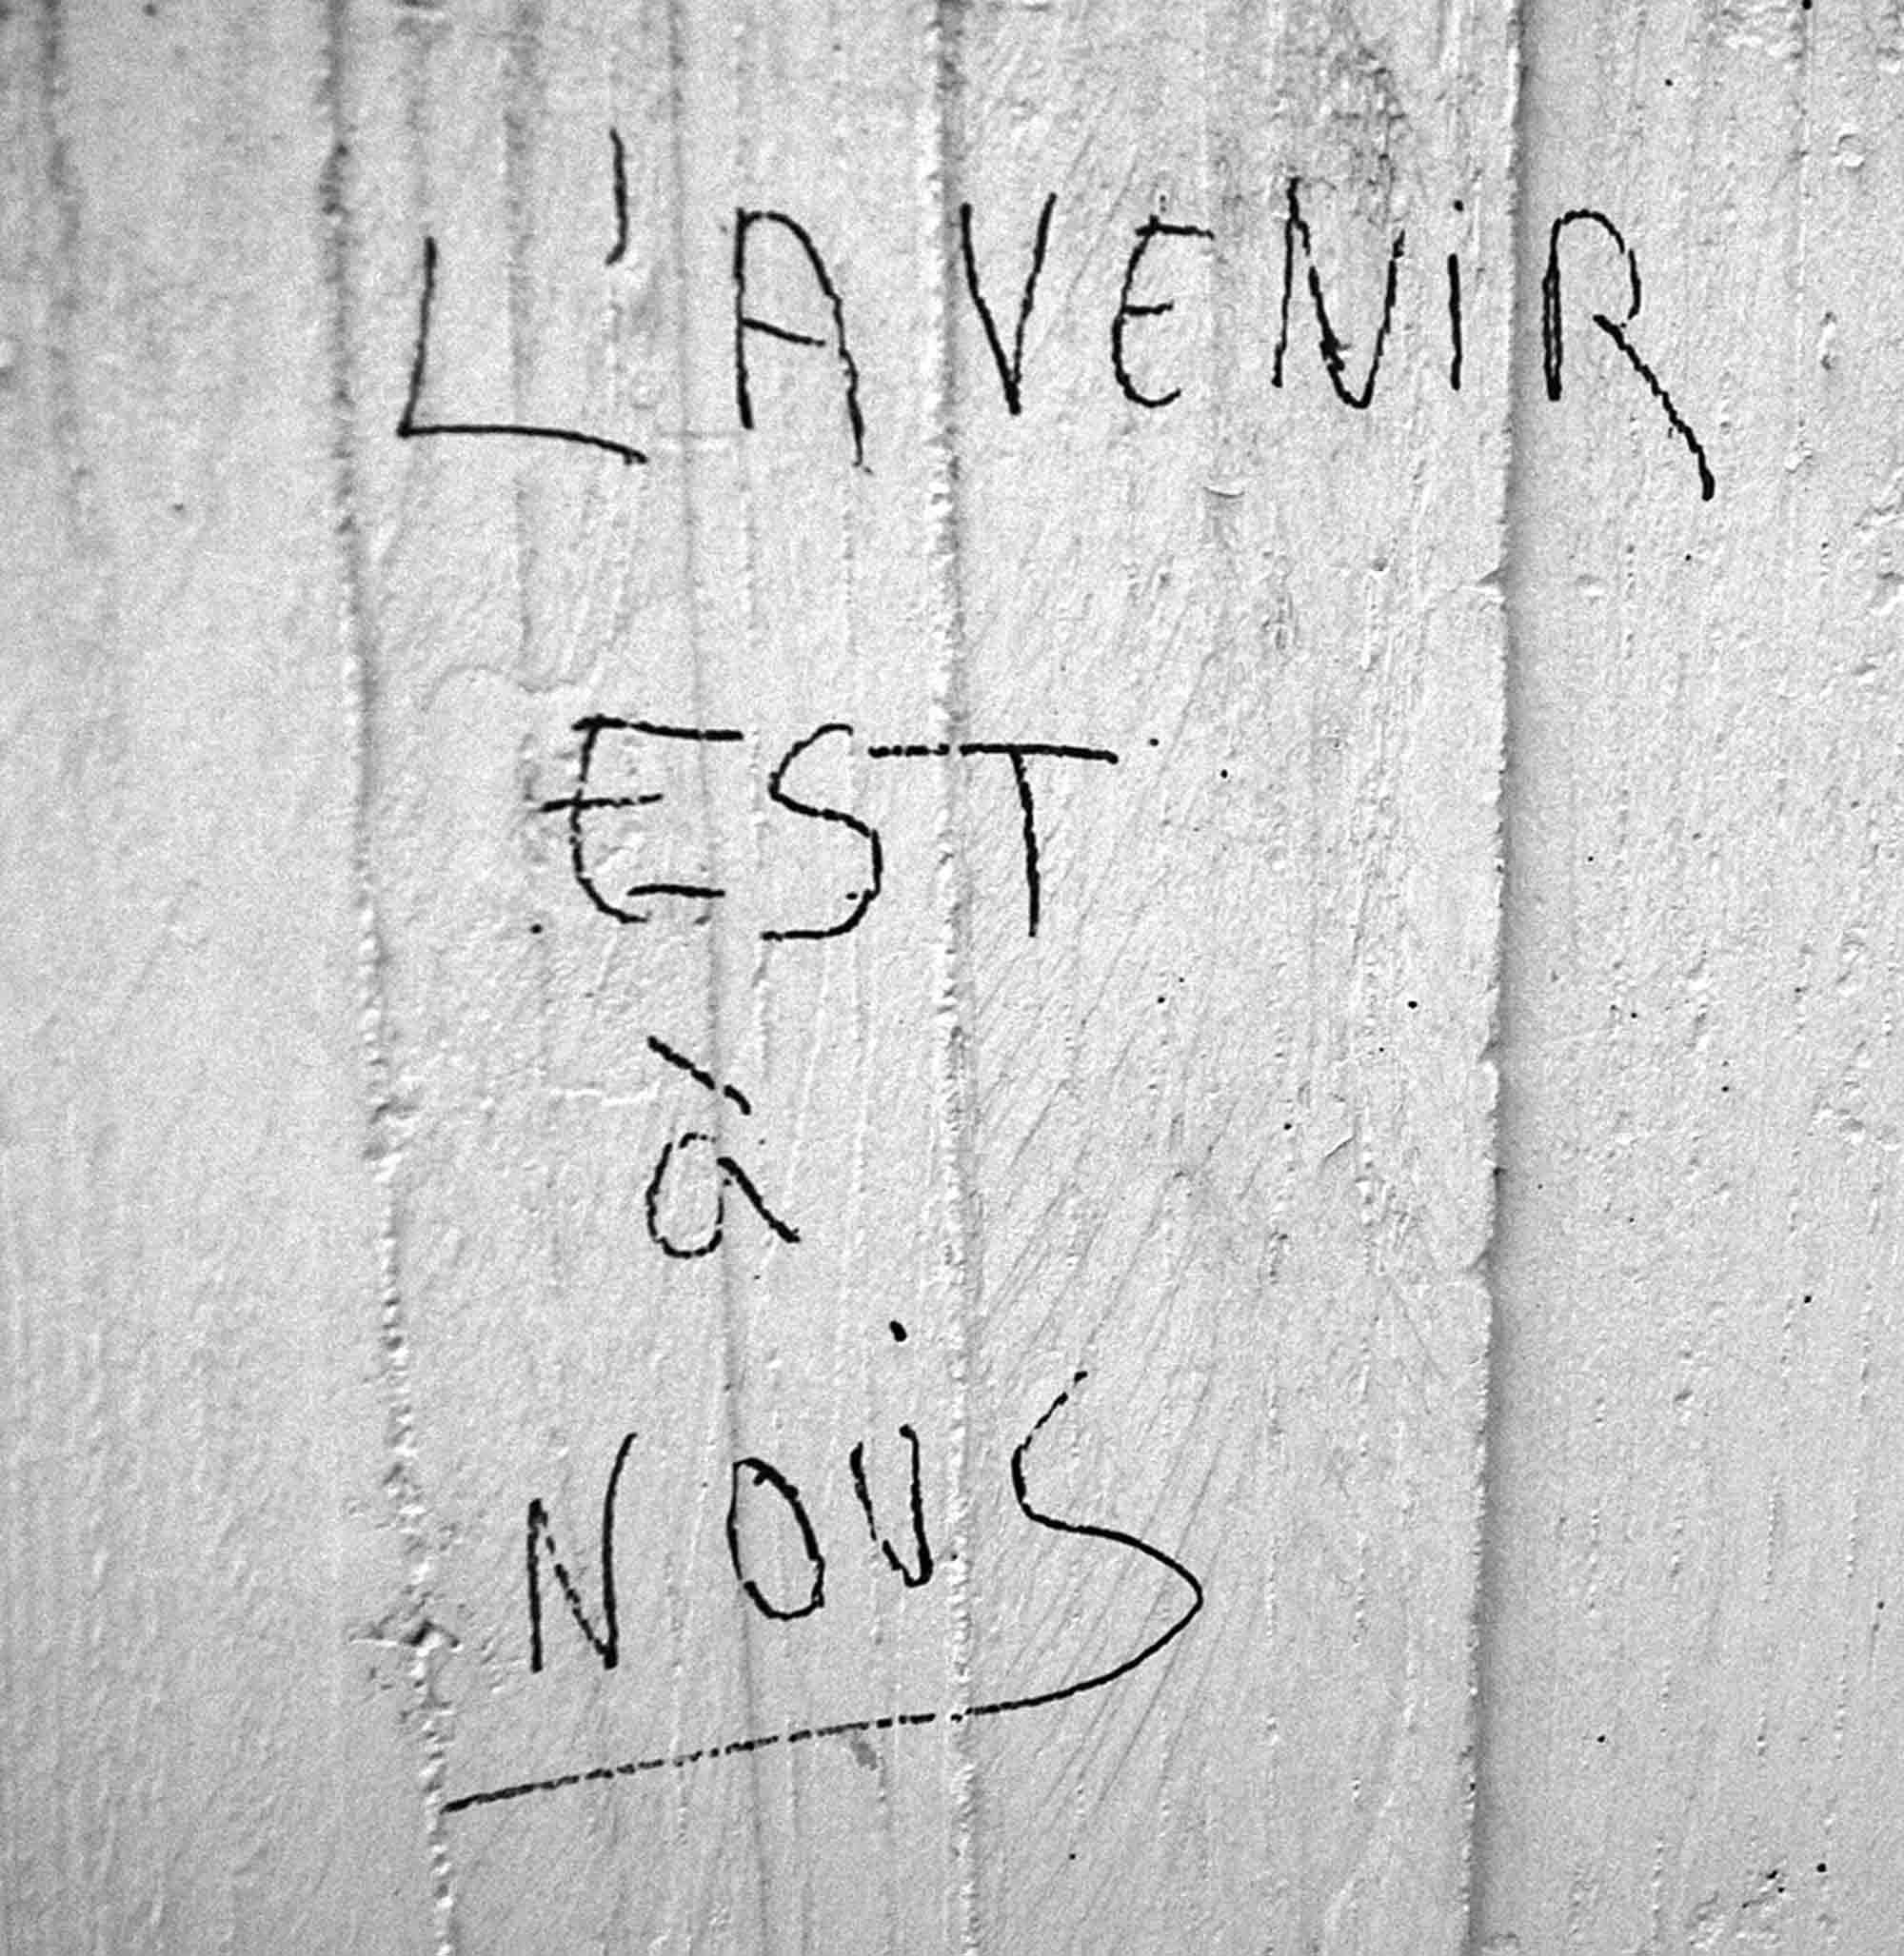 L'AVENiR
EST
à
NOUS